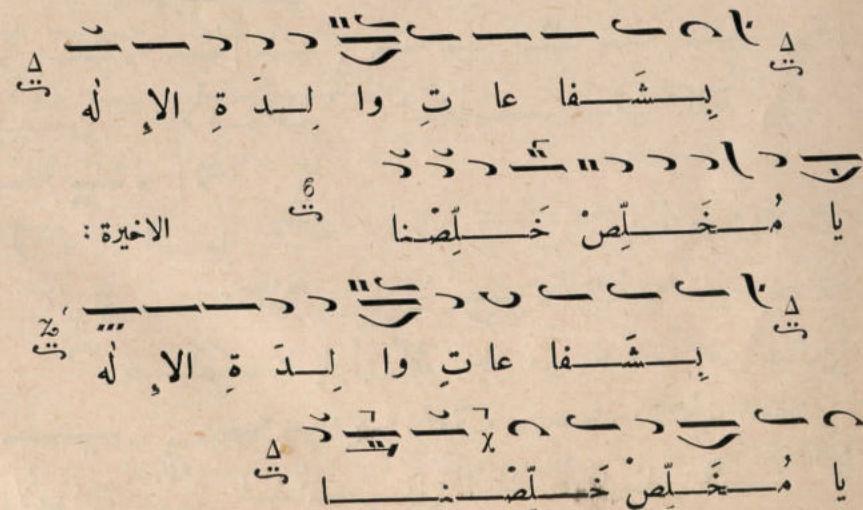 بِشَفاعاتِ والِدَةِ الإِلٰه
يا مُخَلِّصْ خَلِّصْنا الاخيرة :
بِشَفاعاتِ والِدَةِ الإِلٰه
يا مُخَلِّصْ خَلِّصْنا